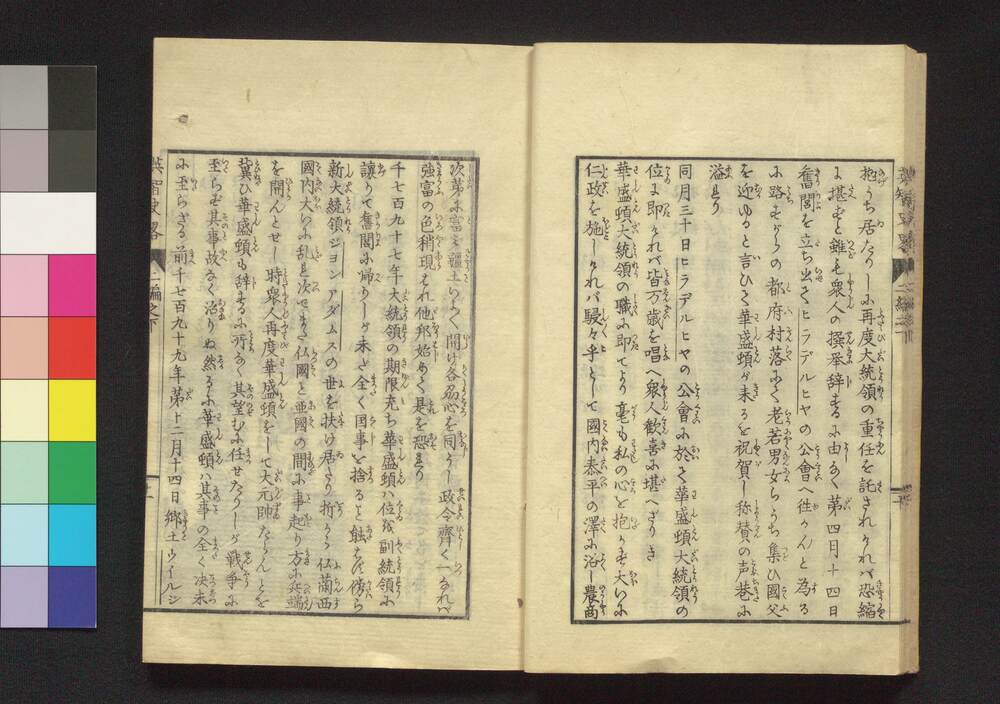 抱うち居たりしに再度大統領の重任を託されければ恐縮
に堪ずと雖も衆人の撰挙辞するに由なく第四月十四日
奮閣を立ち出てヒラデルヒヤの公會へ徃かんと為る
に路すがらの都府村落にて老若男女うち集ひ國父
を迎ゆると言ひて華盛頓が来るを祝賀し称賛の声巷に
溢れり
同月三十日ヒラデルヒヤの公會に於て華盛頓大統領の
位に即ければ皆万歳を唱へ衆人歓喜に堪へざりき
華盛頓大統領の職に即てより毫も私の心を抱かず大いに
仁政を施しければ駸々乎として國内泰平の澤に浴し農商
次第に富み疆土いよいよ開け各心を同うし政令齊く一なれば
強富の色稍現はれ他邦始めて是を恐れり
千七百九十七年大統領の期限充ち華盛頓ハ位を副統領に
讓りて奮閣に帰りしが未だ全く国事を捨ると雖も傍ら
新大統領ジヨンアダムスの世を扶け居たり折から仏蘭西
國内大いに乱れ次でまた仏國と亜國の間に事起り方に兵端
を開んとせし時衆人再度華盛頓をして大元帥たらんとを
冀ひ華盛頓も辞するに所なく其望むに任せたりしが戦争に
至らず其事故なく治りぬ然るに華盛頓ハ其事の全く决末
に至らざる前千七百九十九年第十二月十四日郷土ウイルジ
二編之下